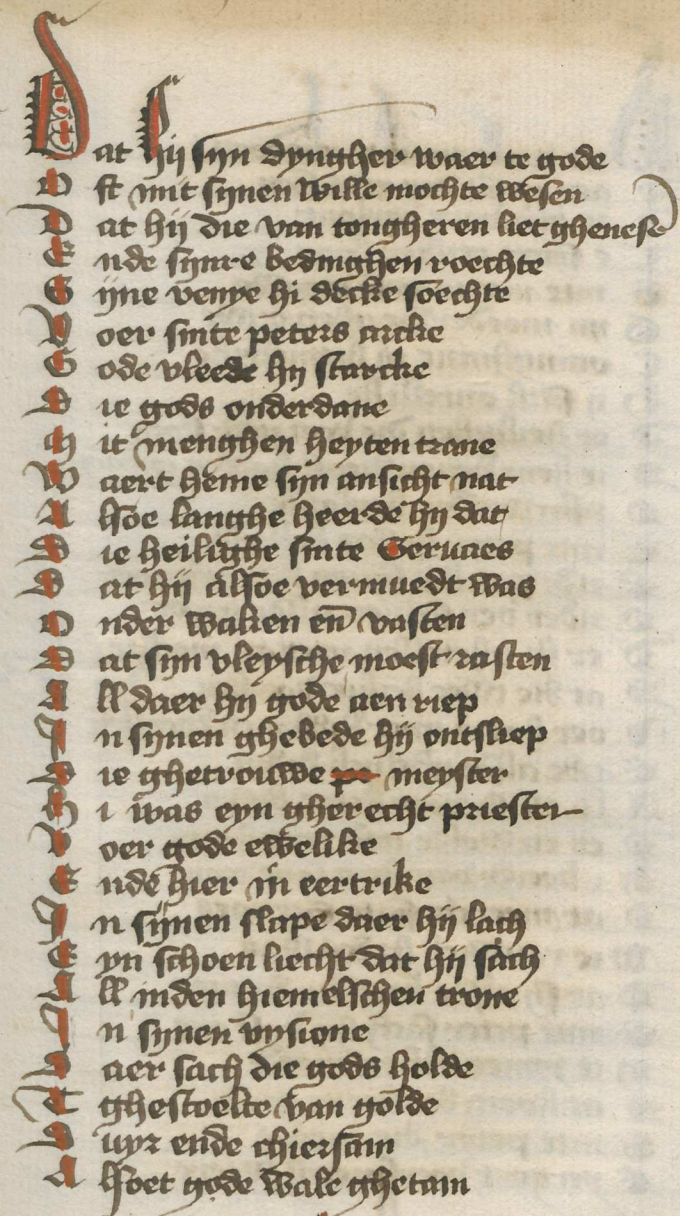 Dat hij sijn dyngher waer te gode
Oft mit synen wille mochte wesen
Dat hij die van tongheren liet ghenese
Ende synre bedinghen roechte
Sijne venye hi decke soechte
Voer sinte peters arcke
Gode vleede hij starcke
Die gods onderdane
Mit menghen heyten trane
Waert heme sijn ansicht nat
Alsoe langhe heerde hij dat
Die heilighe sinte Seruaes
Dat hij alsoe vermuedt was
Onder waken en̄ vasten
Dat sijn vleysche moest rasten
All daer hij gode aen riep
In synen ghebede hij ontsliep
Die ghetrouwe meyster
Hi was eyn gherecht priester
Voer gode ewelike
Ende hier in eertrike
In sijnen slape daer hij lach
Eyn schoen liecht dat hij sach
All inden hiemelschen trone
In synen vysione
Daer sach die gods holde
Eghestoelte van golde
Duyr ende chiersam
Alsoet gode wale ghetam